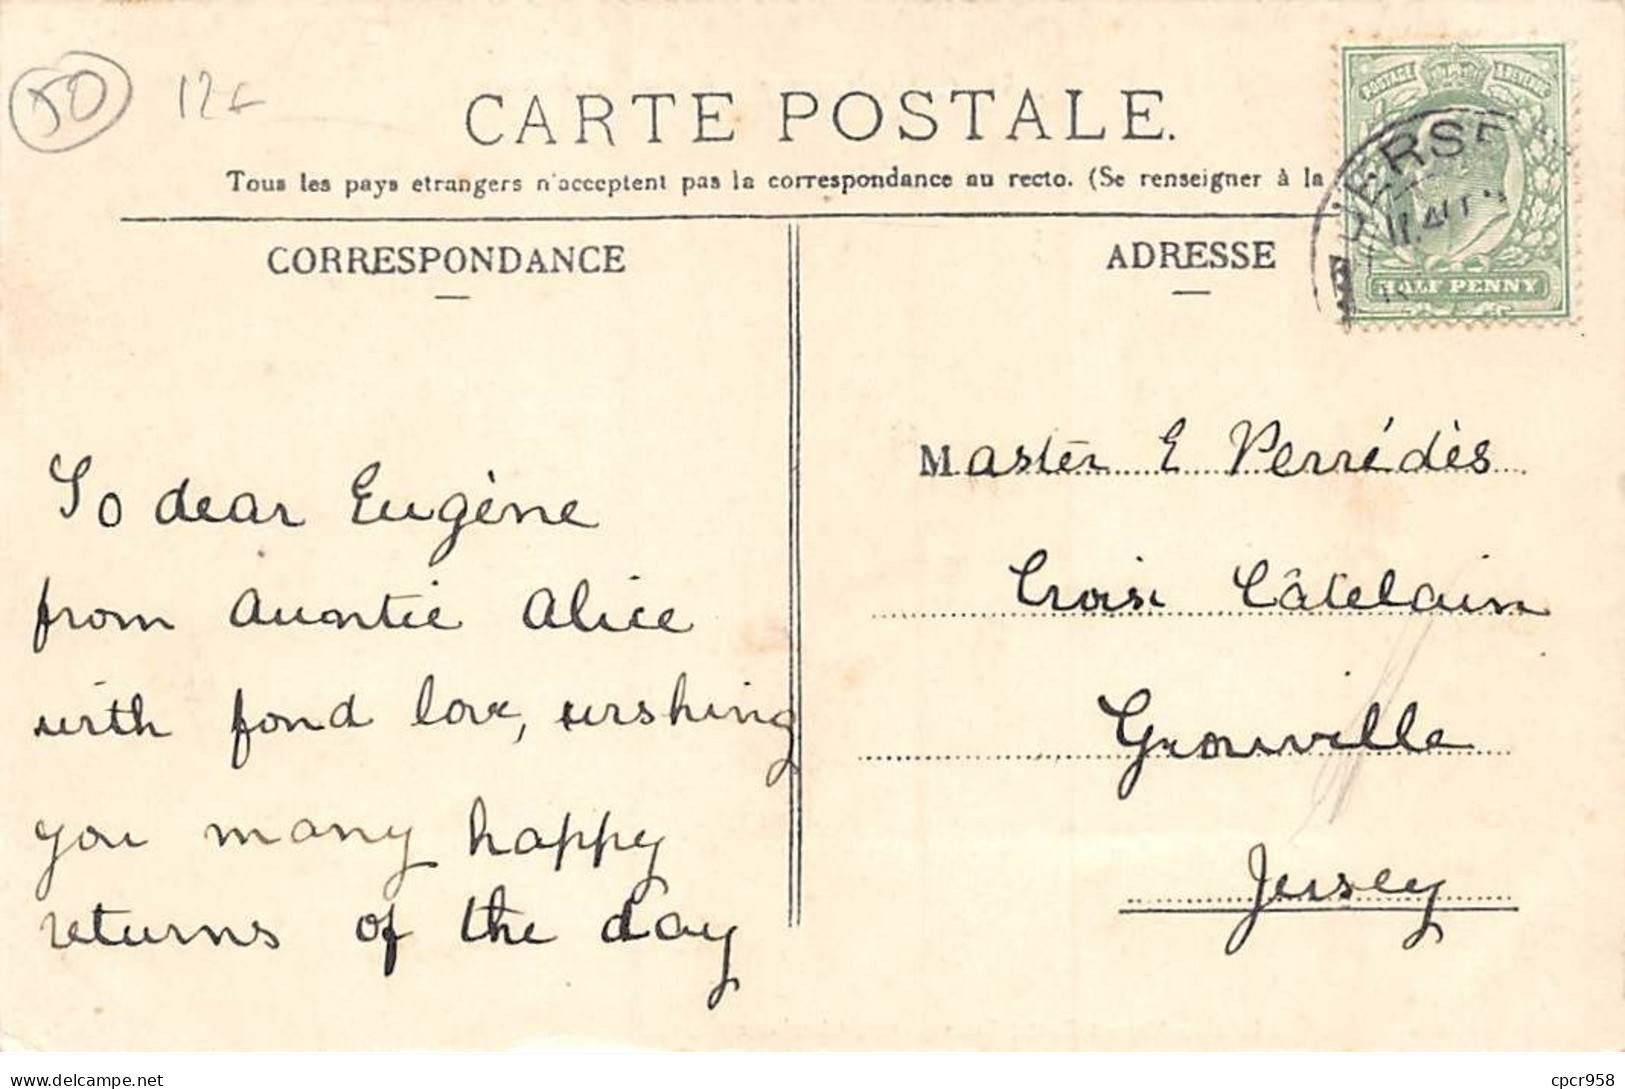 50
12€
CARTE POSTALE.
Tous les pays etrangers n'acceptent pas la correspondance au recto. (Se renseigner à la
CORRESPONDANCE
ADRESSE
POSTAGE & REVENUE
HALF PENNY
JERSE
11.AU
To dear Eugène
from Auntie Alice
with fond love, wishing
you many happy
returns of the day
Master E Perrédès
Croix Câtelain
Grouville
Jersey
delcampe.net
cpcr958